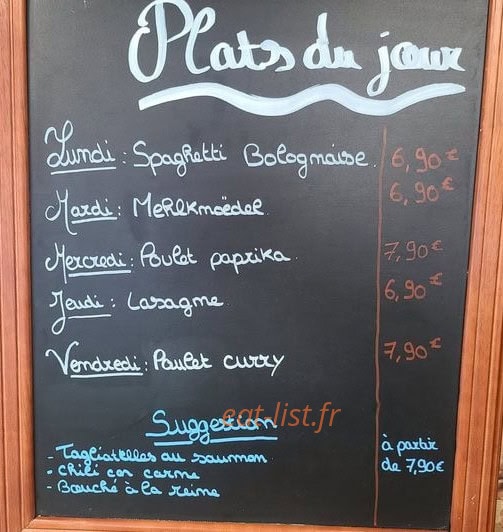 Plats du jour
Lundi : Spaghetti Bolognaise. 6,90€
Mardi : Mehlkmoëdel. 6,90€
Mercredi : Poulet paprika. 7,90€
Jeudi : Lasagne. 6,90€
Vendredi : Poulet curry 7,90€
Suggestion
eat-list.fr
- Tagliatelles au saumon
- Chili con carne
- Bouché à la reine
à partir
de 7,90€